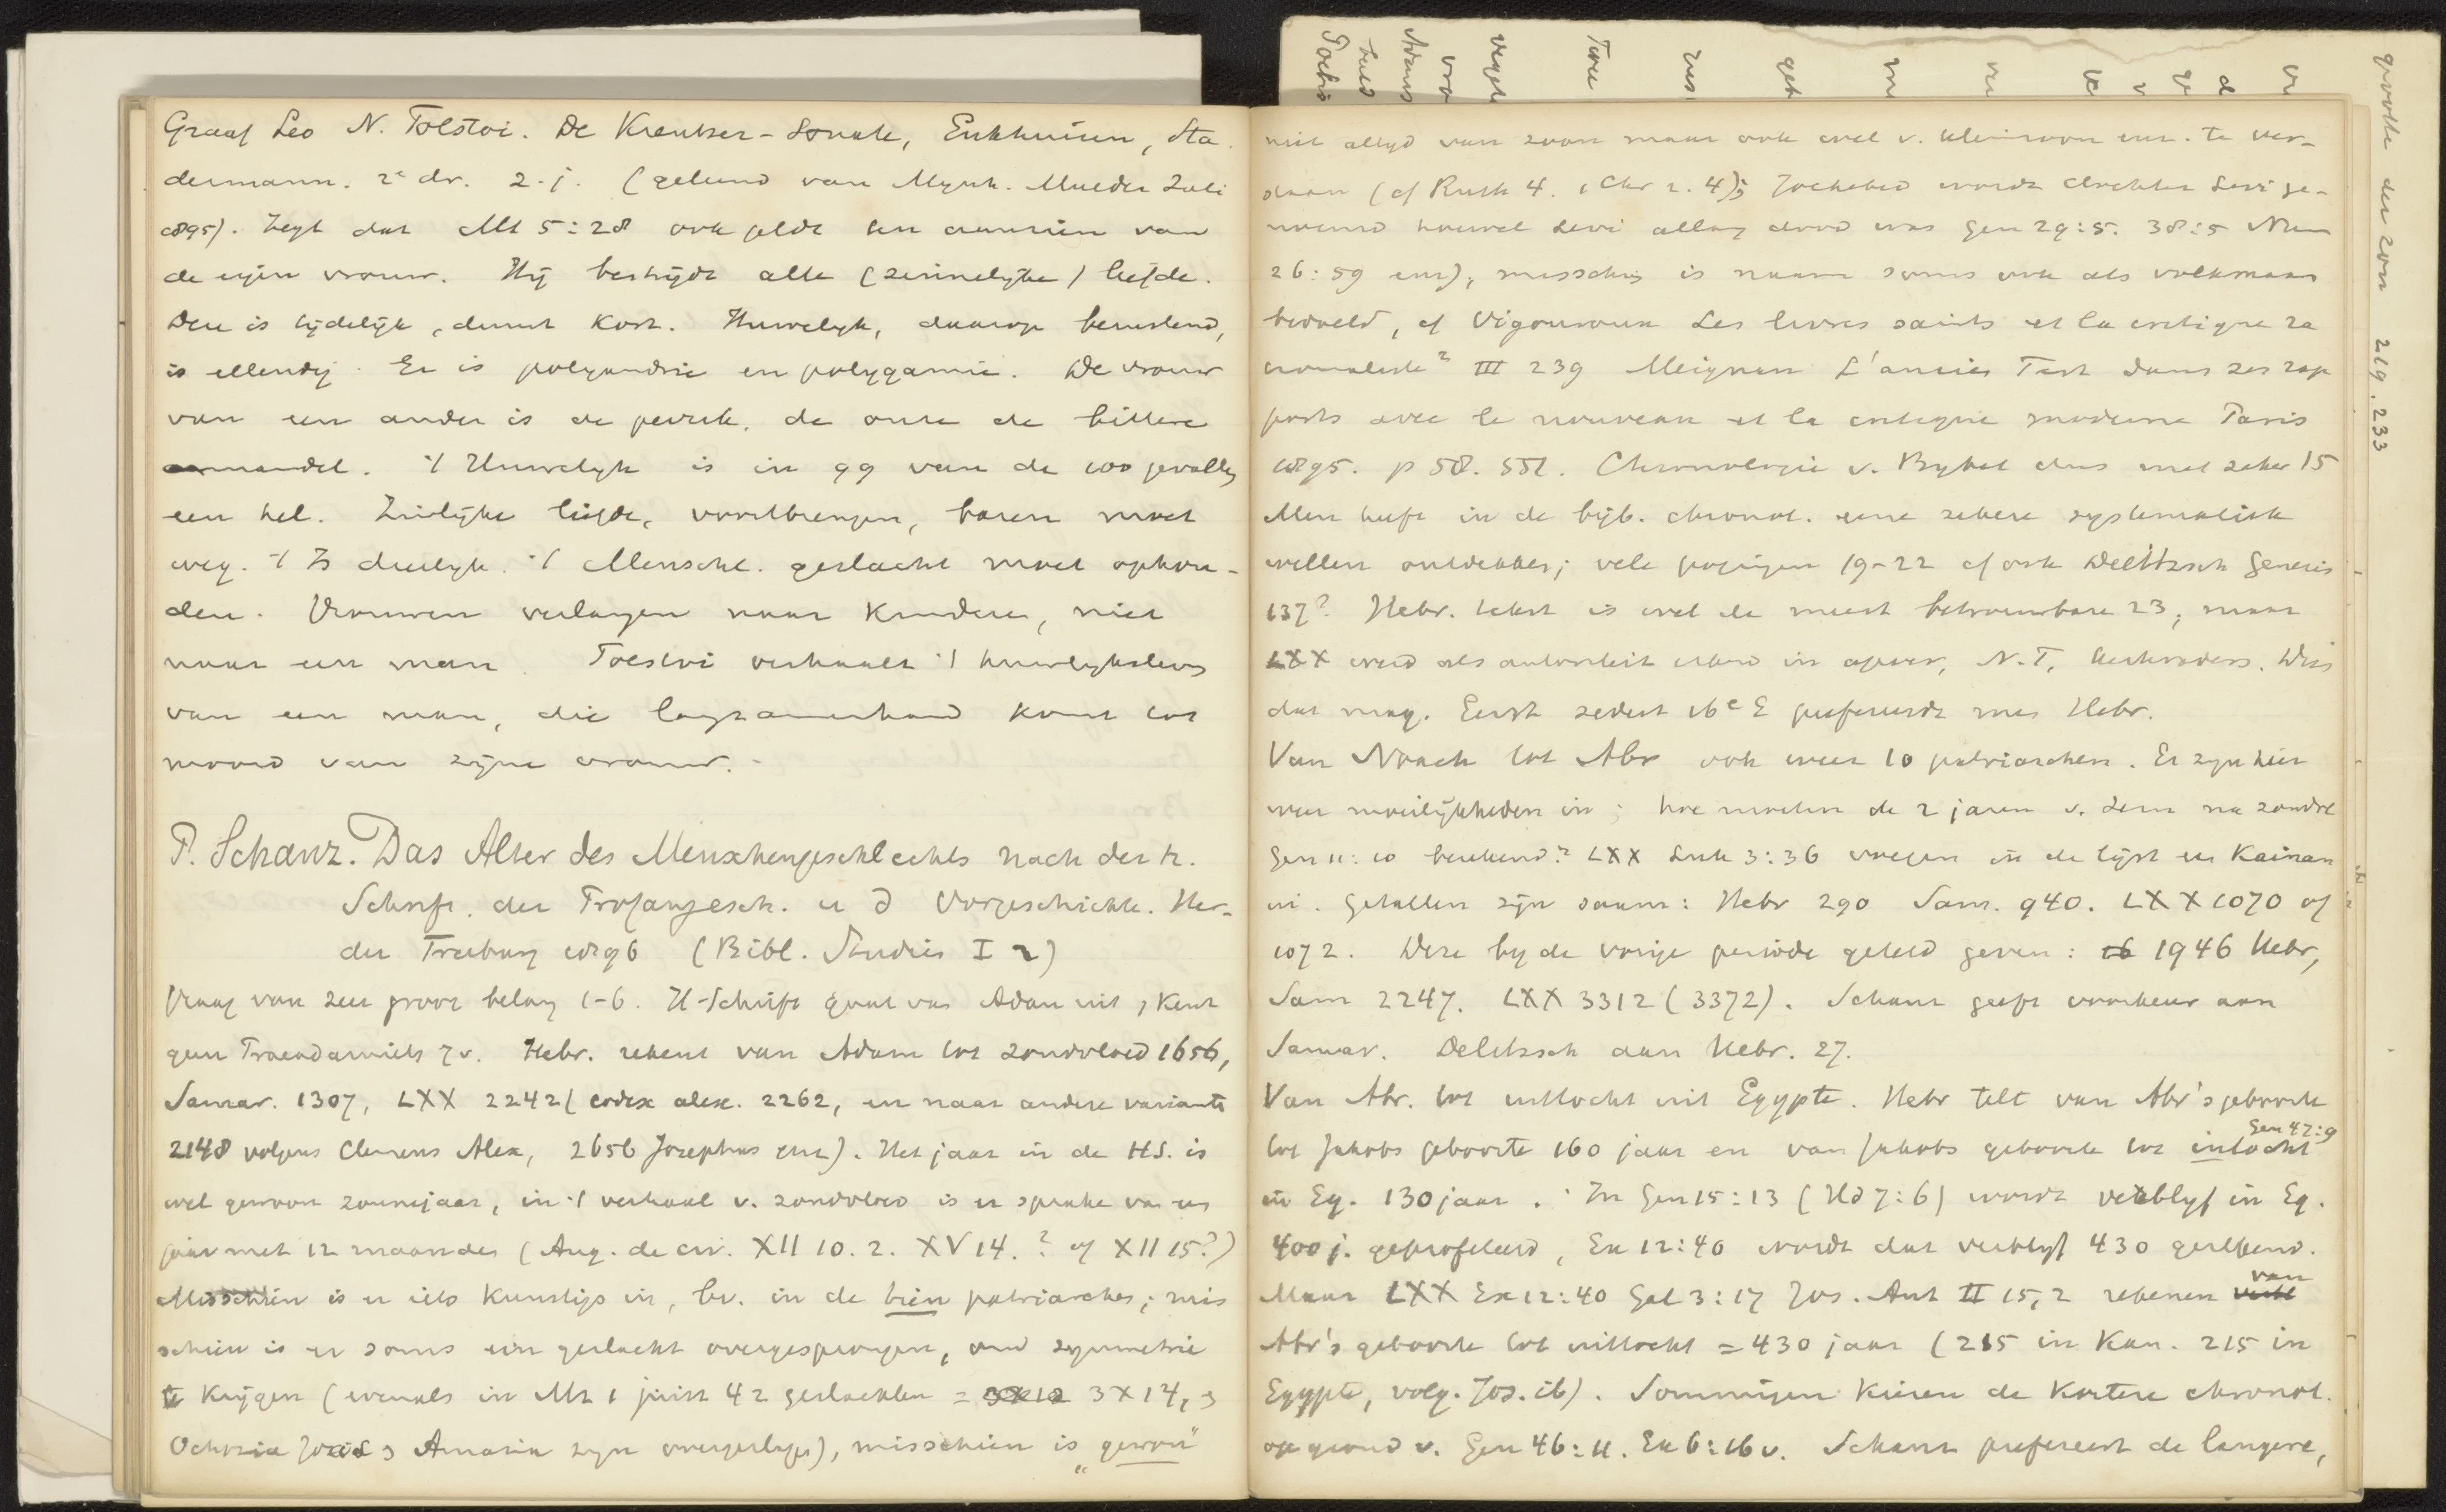 Graaf Leo N. Tolstoi. De Kreutzer-Sonate, Enkhuizen, Sta
dermann. 2e dr. z.j. (geleend van Mynh. Mulder Juli
1895). Zegt dat Mt 5:28 ook geldt ten aanzien van
de eigen vrouw. Hij bestrijdt alle (zinnelijke) liefde.
Deze is tijdelijk, duurt kort. Huwelijk, daarop berustend,
is ellendig. Er is polyandrie en polygamie. De vrouw
van een ander is de perzik, de onze de bittere
amandel. 't Huwelyk is in 99 van de 100 gevallen
een hel. Zinlijke liefde, voortbrengen, baren moet
weg. 't Is dierlyk. 't Menschl. geslacht moet ophou-
den. Vrouwen verlangen naar kinderen, niet
naar een man. Tolstoi verhaalt 't huwlyksleven
van een man, die langzamerhand komt tot
moord van zijne vrouw. -
P. Schanz. Das Alter des Menschengeschlechts nach der h.
Schrift, der Profangesch. u d Vorgeschichte. Her-
der Freiburg 1896 (Bibl. Studien I 2)
Vraag van zeer groot belang 1-6. H-Schrift gaat van Adam uit, kent
geen Praeadamiets 7v. Hebr. rekent van Adam tot zondvloed 1656,
Samar. 1307, LXX 2242 (codex alex. 2262, en naar andere varianten
2148 volgens Clemens Alex, 2656 Josephus enz). Het jaar in de HS. is
wel gewoon zonnejaar, in 't verhaal v. zondvloed is er sprake van een
jaar met 12 maanden (Aug. de civ. XII 10. 2. XV 14. ? of XII 15?)
Misschien is er iets kunstigs in, bv. in de tien patriarchen; mis
schien is er soms een geslacht overgesprongen, om symmetrie
te krijgen (evenals in Mt 1 juist 42 geslachten = 3x14,
Ochozia Joas Amazia zyn overgeslagen), misschien is "gewon"
niet altyd van zoon maar ook wel v. kleinzoon enz. te ver-
staan (cf Ruth 4. 1 Chr 2. 4); Jochebed wordt dochter Levi ge-
noemd hoewel Levi allang dood was Gen 29:5. 38:5 Num
26:59 enz), misschien is naam soms ook als volksnaam
bedoeld, cf Vigouroux Les livres saints et la critique ra
tionaliste² III 239 Meignan L'ancien Test dans ses rap
ports avec le nouveau et la critique moderne Paris
1895. p 58. 551. Chronologie v. Bybel dus niet zeker 15
Men heeft in de bijb. chronol. eene zekere systematiek
willen ontdekken; vele pogingen 19-22 cf ook Delitzsch Genesis
137? Hebr. tekst is wel de meest betrouwbare 23, maar
LXX werd als autoriteit erkend in N.T., kerkvaders.
dat mag. Eerst sedert 16e E prefereerde men Hebr.
Van Noach tot Abr ook weer 10 patriarchen. Er zyn hier
weer moeilijkheden in; hoe moeten de 2 jaren v. Sem na zondvl
Gen 11:10 berekend? LXX Luk 3:36 voegen in de lijst een Kainan
in. Getallen zijn saam: Hebr 290 Sam. 940. LXX 1070 of
1072. Deze by de vorige periode geteld geven: 1946 Hebr,
Sam 2247. LXX 3312 (3372). Schanz geeft voorkeur aan
Samar. Delitzsch aan Hebr. 27.
Van Abr. tot uittocht uit Egypte. Hebr telt van Abr's geboorte
tot Jakobs geboorte 160 jaar en van Jakobs geboorte tot intocht
Gen 47:9
in Eg. 130 jaar. In Gen 15:13 (Hd 7:6) wordt verblyf in Eg.
400 j. geprofeteerd, Ex 12:40 wordt dat verblyf 430 gerekend.
Maar LXX Ex 12:40 Gal 3:17 Jos. Ant II 15,2 rekenen van
Abr's geboorte tot uittocht = 430 jaar (215 in Kan. 215 in
Egypte, volg. Jos. ib). Sommigen kiezen de kortere chronol.
op grond v. Gen 46:11. Ex 6:16v. Schanz prefereert de langere,
grootte der zon 219. 233